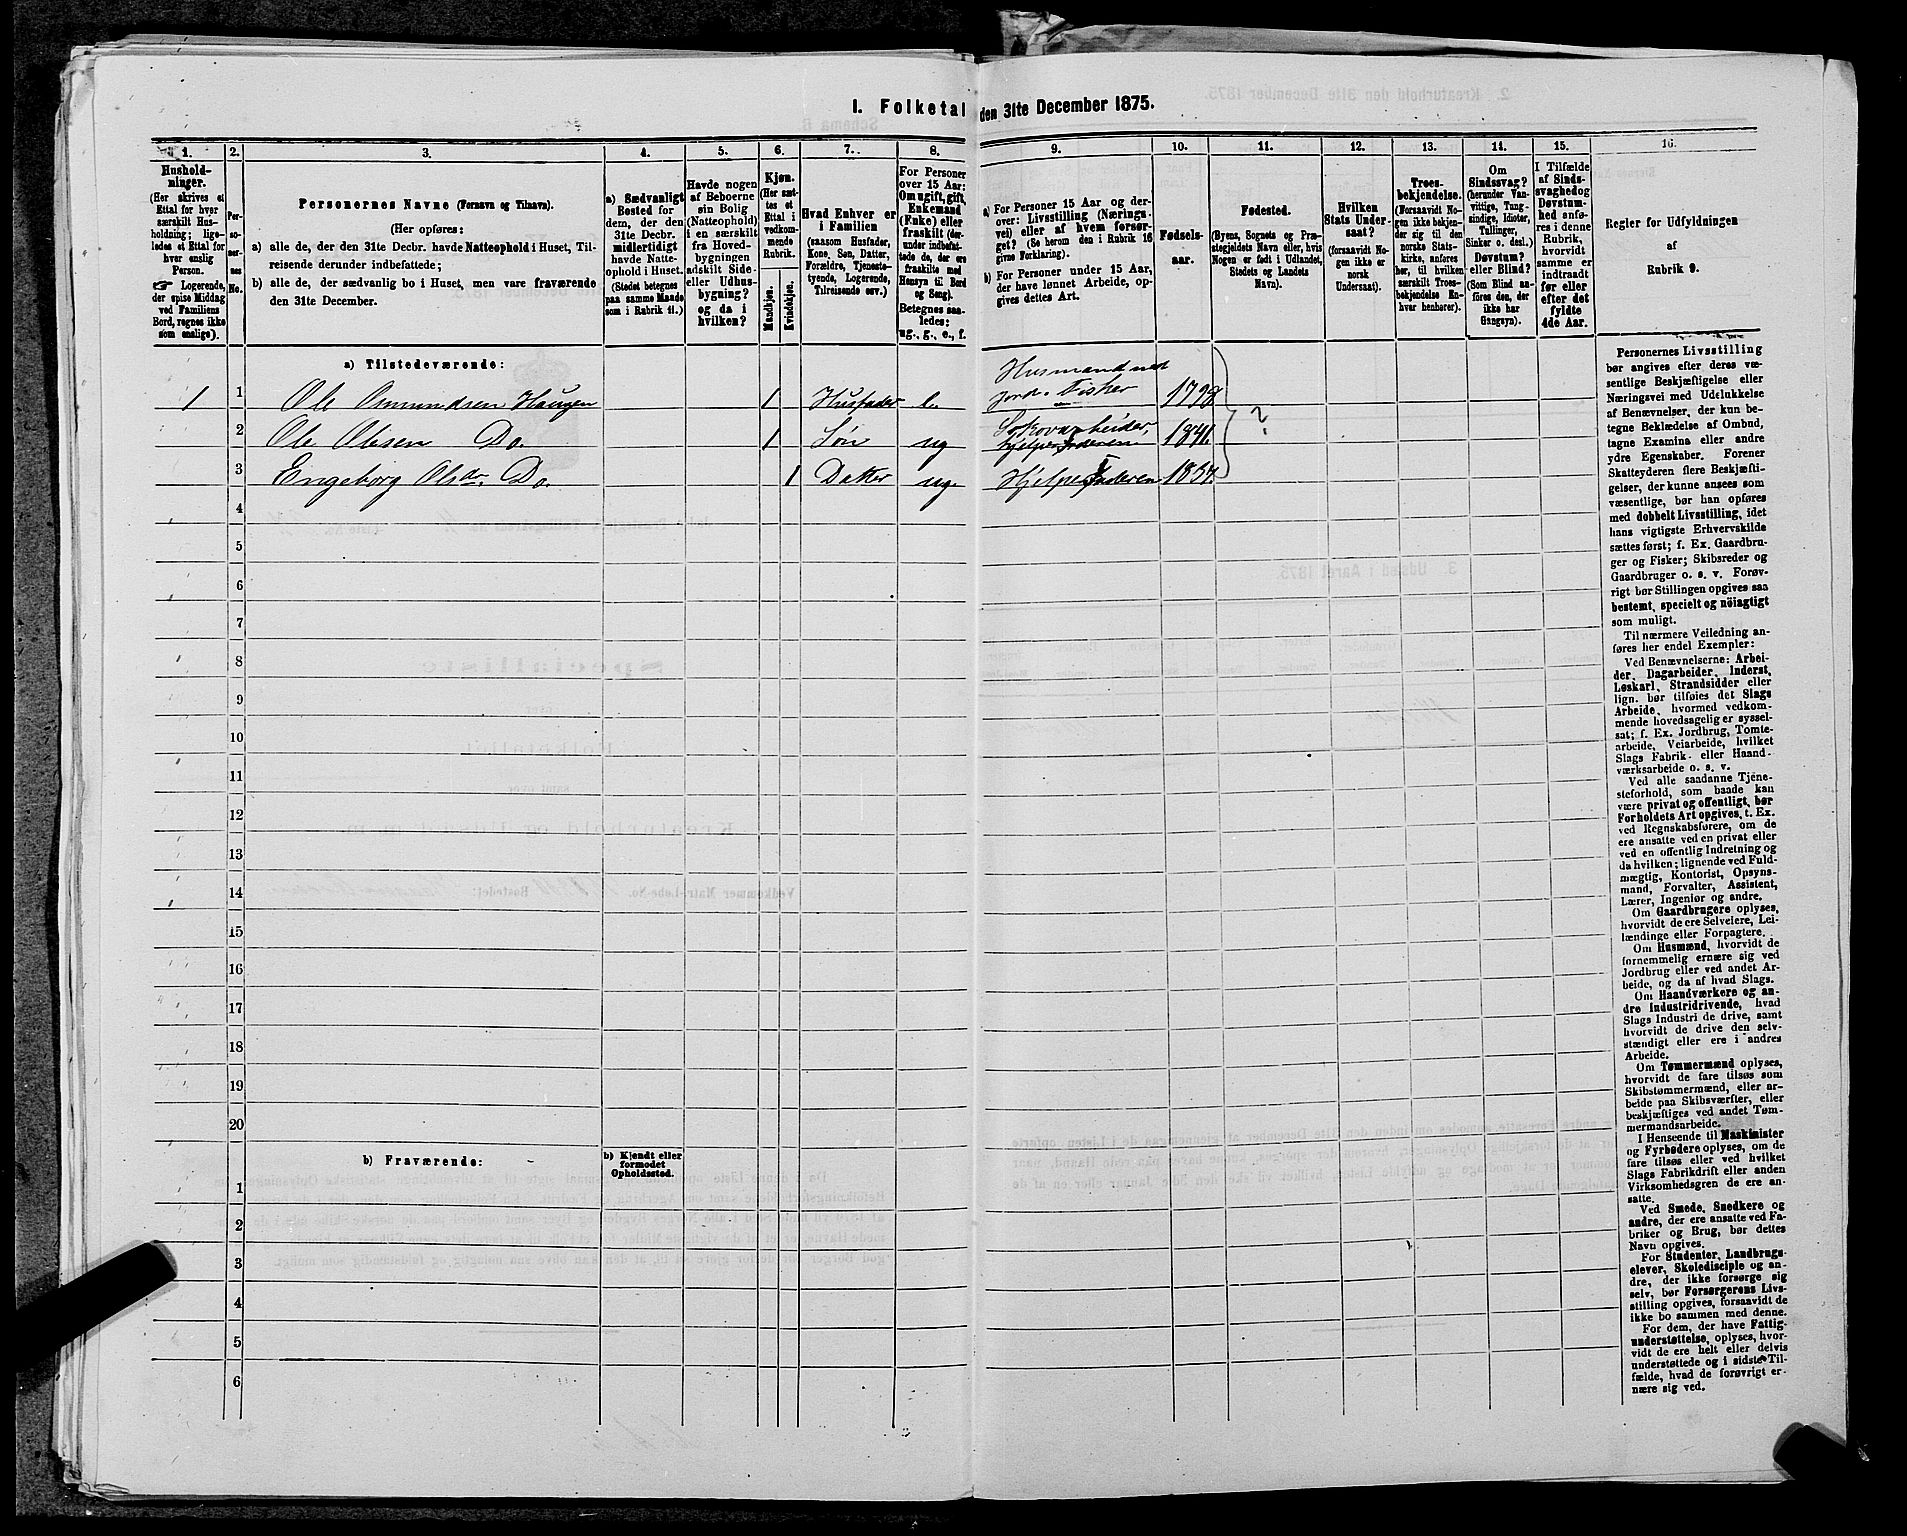 I. Folketal den 31te December 1875.
1.
Hushold-
ninger.
(Her skrives et
Ettal for hver
særskilt Hus-
holdning; lige-
ledes et Ettal for
hver enslig
Person.
☞ Logerende,
der spise Middag
ved Familiens
Bord, regnes ikke
som enslige).
2.
Per-
so-
ner-
nes
No.
3.
Personernes Navne (Fornavn og Tilnavn).
(Her opføres:
a) alle de, der den 31te Decbr. havde Natteophold i Huset, Til-
reisende derunder indbefattede;
b) alle de, der sædvanlig bo i Huset, men vare fraværende
den 31te December.
4.
a) Sædvanligt
Bosted for
dem, der den
31te Decbr.
midlertidigt
havde Natte-
ophold i Huset.
(Stedet betegnes
paa samme Maade
som i Rubrik 11.)
5.
Havde nogen
af Beboerne
sin Bolig
(Natteophold)
i en særskilt
fra Hoved-
bygningen
adskilt Side-
eller Udhus-
bygning?
og da i
hvilken?
6.
Kjøn.
(Her sæt-
tes et
Ettal i
vedkom-
mende
Rubrik.
Mandkjøn.
Kvindekjøn.
7.
Hvad Enhver er
i Familien
(saasom Husfader,
Kone, Søn, Datter,
Forældre, Tjeneste-
tyende, Logerende,
Tilreisende osv.)
8.
For Personer
over 15 Aar:
Om ugift, gift,
Enkemand
(Enke) eller
fraskilt (der-
under indbefat-
tede de, der ere
fraskilte med
Hensyn til Bord
og Seng).
Betegnes saa-
ledes:
ug., g., e., f.
9.
a) For Personer 15 Aar og der-
over: Livsstilling (Nærings-
vei) eller af hvem forsør-
get? (Se herom den i Rubrik 16
givne Forklaring).
b) For Personer under 15 Aar,
der have lønnet Arbeide, op-
gives dettes Art.
10.
Fødsels-
aar.
11.
Fødested.
(Byens, Sognets og Præ-
stegjeldets Navn eller, hvis
Nogen er født i Udlandet,
Stedets og Landets
Navn).
12.
Hvilken
Stats Under-
saat?
(forsaavidt No-
gen ikke er
norsk
Undersaat).
13.
Troes-
bekjendelse.
(Forsaavidt No-
gen ikke bekjen-
der sig til den
norske Stats-
kirke, anføres
her, til hvilken
særskilt Troes-
bekjendelse En-
hver henhører).
14.
Om
Sindssvag?
(herunder Van-
vittige, Tung-
sindige, Idioter,
Tullinger,
Sinker o. desl.)
Døvstum?
eller Blind?
(Som Blind an-
føres den, der
ikke har
Gangsyn).
15.
I Tilfælde
af Sinds-
svaghed og
Døvstum-
hed anfø-
res i denne
Rubrik,
hvorvidt
samme er
indtraadt
før eller
efter det
fyldte
4de Aar.
16.
Regler for Udfyldningen
af
Rubrik 9.
a) Tilstedeværende:
1 1 Ole Osmundsen Haugen 1 Husfader e. Husmand med
jord. Fisker 1798 ?
2 Ole Olsen Do. 1 Søn ug Skovarbeider,
hjelper Faderen 1841
3 Engeborg Olsdr. Do. 1 Datter ug. Hjelper Faderen 1837.
4
5
6
7
8
9
10
11
12
13
14
15
16
17
18
19
20
b) Fraværende:
b) Kjendt eller
formodet
Opholdssted.
1
2
3
4
5
6
Personernes Livsstilling
bør angives efter deres væ-
sentlige Beskjæftigelse eller
Næringsvei med Udelukkelse
af Benævnelser, der kun be-
tegne Beklædelse af Ombud,
tagne Examina eller andre
ydre Egenskaber. Forener
Skatteyderen flere Beskjæfti-
gelser, der kunne ansees som
væsentlige, bør han opføres
med dobbelt Livsstilling, idet
hans vigtigste Erhvervskilde
sættes først; f. Ex. Gaardbru-
ger og Fisker; Skibsreder og
Gaardbruger o. s. v. Forøv-
rigt bør Stillingen opgives saa
bestemt, specielt og nöiagtigt
som muligt.
Til nærmere Veiledning an-
føres her endel Exempler:
Ved Benævnelserne: Arbei-
der, Dagarbeider, Inderst,
Løskarl, Strandsidder eller
lign. bør tilføies det Slags
Arbeide, hvormed vedkom-
mende hovedsagelig er syssel-
sat; f. Ex. Jordbrug, Tomte-
arbeide, Veiarbeide, hvilket
Slags Fabrik- eller Haand-
værksarbeide o. s. v.
Ved alle saadanne Tjene-
steforhold, som baade kan
være privat og offentligt, bør
Forholdets Art opgives, t. Ex.
ved Regnskabsførere, om de
ere ansatte ved en privat eller
ved en offentlig Indretning og
da hvilken; lignende ved Fuld-
mægtig, Kontorist, Opsyns-
mand, Forvalter, Assistent,
Lærer, Ingeniør og andre.
Om Gaardbrugere oplyses,
hvorvidt de ere Selveiere, Lei-
lændinge eller Forpagtere.
Om Husmænd, hvorvidt de
fornemmelig ernære sig ved
Jordbrug eller ved andet Ar-
beide, og da af hvad Slags.
Om Haandværkere og an-
dre Industridrivende, hvad
Slags Industri de drive, samt
hvorvidt de drive den selv-
stændigt eller ere i andres
Arbeide.
Om Tømmermænd oplyses,
hvorvidt de fare tilsøs som
Skibstømmermænd, eller ar-
beide paa Skibsværfter, eller
beskjæftiges ved andet Tøm-
mermandsarbeide.
I Henseende til Maskinister
og Fyrbødere oplyses, om de
fare tilsøs eller ved hvilket
Slags Fabrikdrift eller anden
Virksomhedsgren de ere an-
satte.
Ved Smede, Snedkere og
andre, der ere ansatte ved Fa-
briker og Brug, bør dettes
Navn opgives.
For Studenter, Landbrugs-
elever, Skoledisciple og an-
dre, der ikke forsørge sig
selv, bør Forsørgerens Livs-
stilling opgives, forsaavidt de
ikke bo sammen med denne.
For dem, der have Fattig-
understøttelse, oplyses, hvor-
vidt de ere helt eller delvis
understøttede og i sidste Til-
fælde, hvad de forøvrigt er-
nære sig ved.